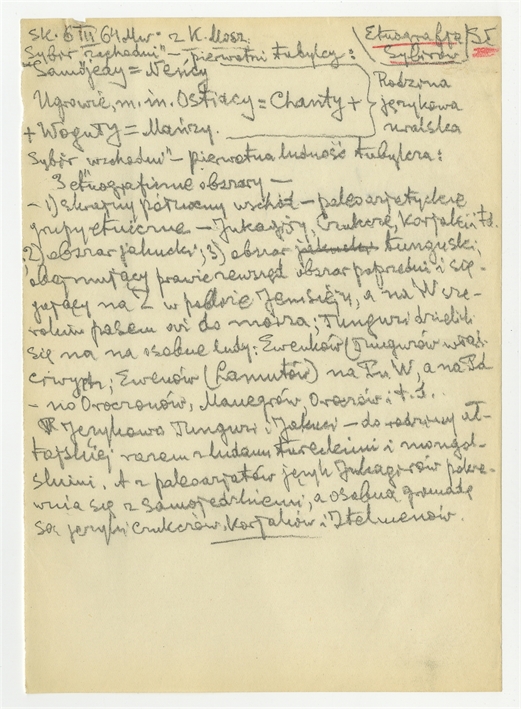 Sk. 6 III 64 Mw. z K. Mosz.
Etnografja Sybirów
55
"Sybir zachodni" – pierwotni tubylcy:
Samojedy = Neńcy
Ugrowie, m. in. Ostiacy = Chanty +
+ Woguły = Mańsy.
Rodzina
językowa
uralska
Sybir wschodni" – pierwotna ludność tubylcza:
3 etnograficzne obszary –
– 1) skrajny północny wschód – paleoazjatyckie
grupy etniczne – Jukagirzy, Czukcze, Korjaki itd.
2) obszar jakucki; 3) obszar jakucki tunguski,
obejmujący prawie zewsząd obszar poprzedni i się-
gający na Z w pobliże Jeniseju, a na W sze-
rokim pasem aż do morza; Tunguzi dzielili
się na na osobne ludy: Ewenków (Tunguzów właś-
ciwych; Ewenów (Lamutów) na Pn W, a na Pd
– no Oroczonów, Manegrów, Oroczów i t. d.
Językowo Tunguzi i Jakuci – do rodziny ał-
tajskiej razem z ludami tureckimi i mongol-
skimi. A z paleoazjatów język Jukagirów pokre-
wnia się z samojedzkiemi, a osobną gromadę
są języki Czukczów, Korjaków i Itelmenów.